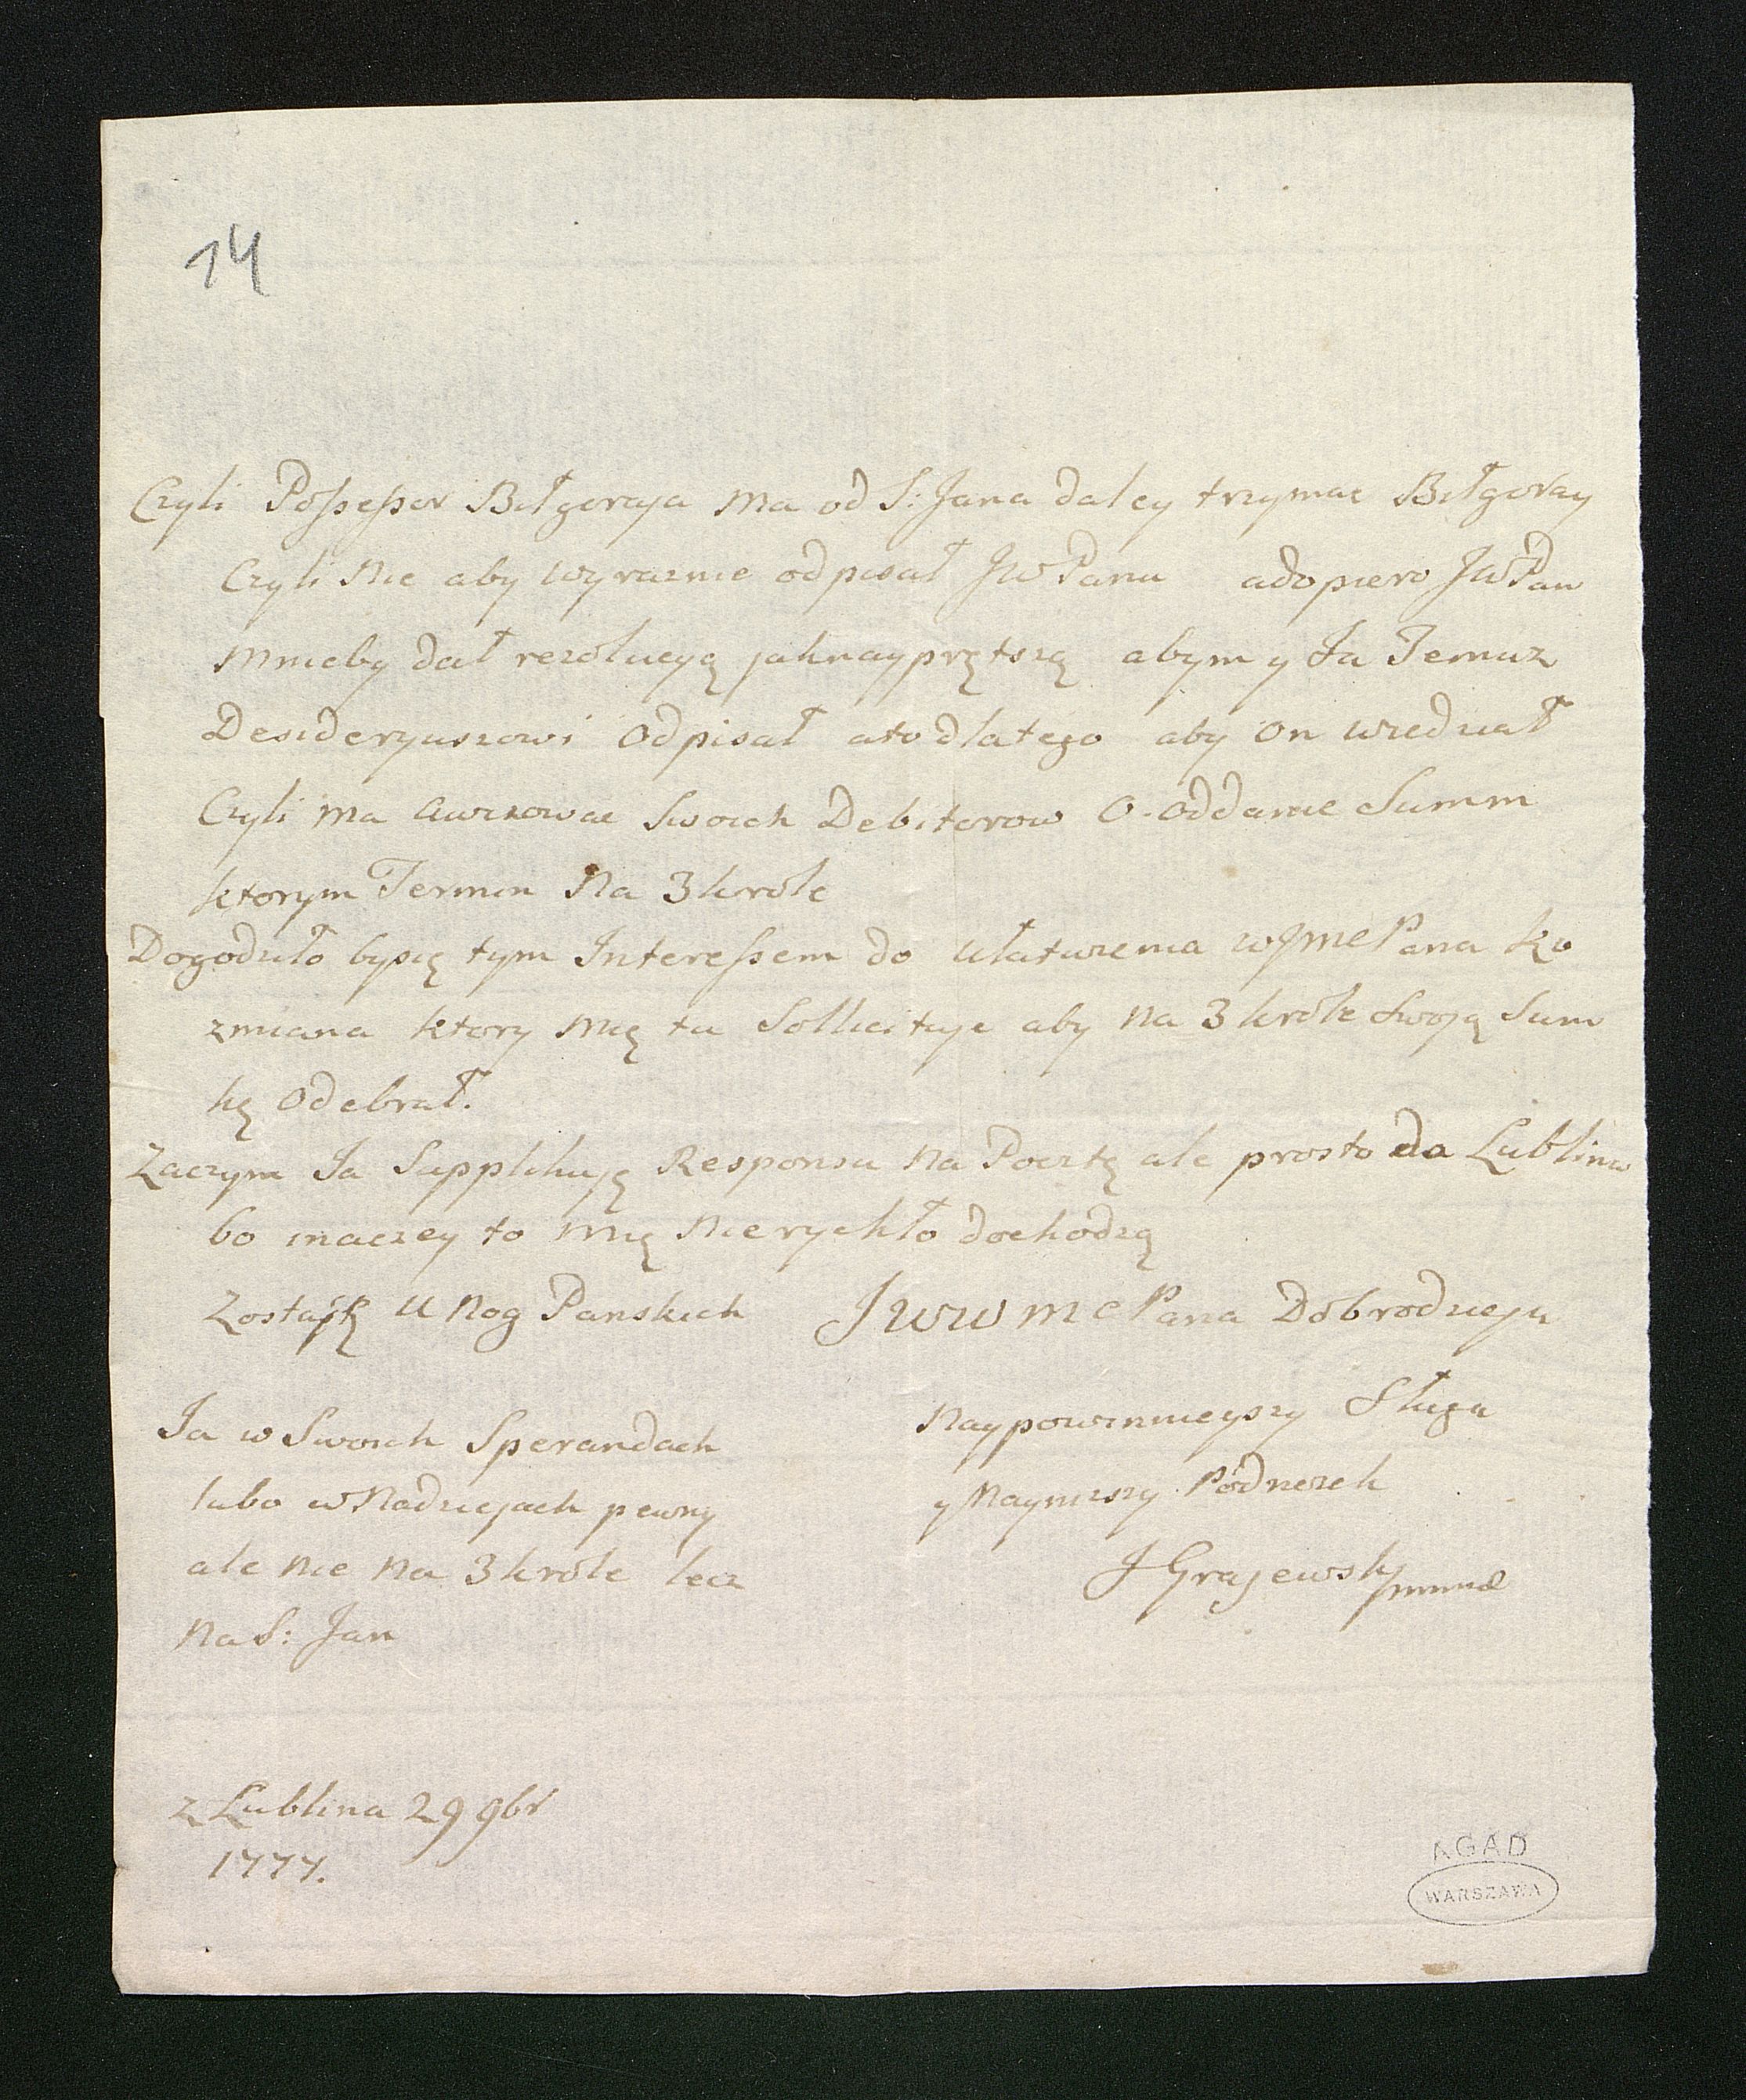 14
Czyli Possessor Biłgoraja ma od S: Jana daley trzymac Biłgoray
Czyli nie aby wyraznie odpisał JWPanu adopiero JWPan
mnieby dał rezolucyą jaknayprętszą abym y Ja Temuz
Desideryuszowi odpisał atodlatego aby on wiedział
Czyli ma awizowac Swoich Debitorow o oddanie Summ
ktorym Termin Na 3 krole
Dogodziło bysię tym Interessem do ułatwienia WJmcPana Ku
zmiana ktory mię tu Sollicituje aby na 3 krole Swoją Sum
kę odebrał.
Zaczym Ja Supplikuję Responsu na Pocztę ale prosto do Lublina
bo inaczey to mię nierychło dochodzą
Zostaję U Nog Panskich JWWmcPana Dobrodzieja
Naypowinnieyszy Sługa
y Nayniższy Podnożek
JGrajewski mmp
Ja w Swoich Sperandach
lubo w Nadziejach pewny
ale nie na 3 krole lecz
na S: Jan
z Lublina 29 9br
1777.
AGAD
WARSZAWA